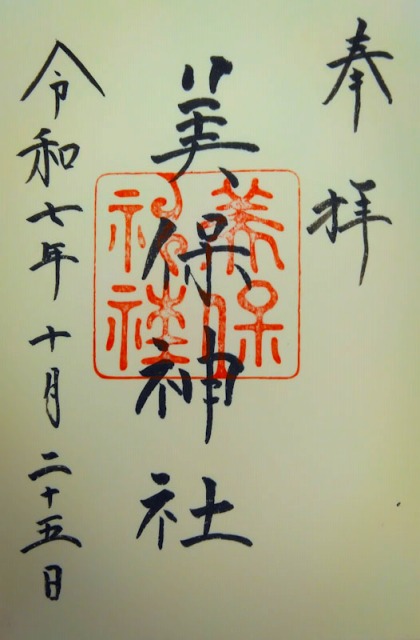 奉拝
美保神社
美保
神社
令和七年十月二十五日